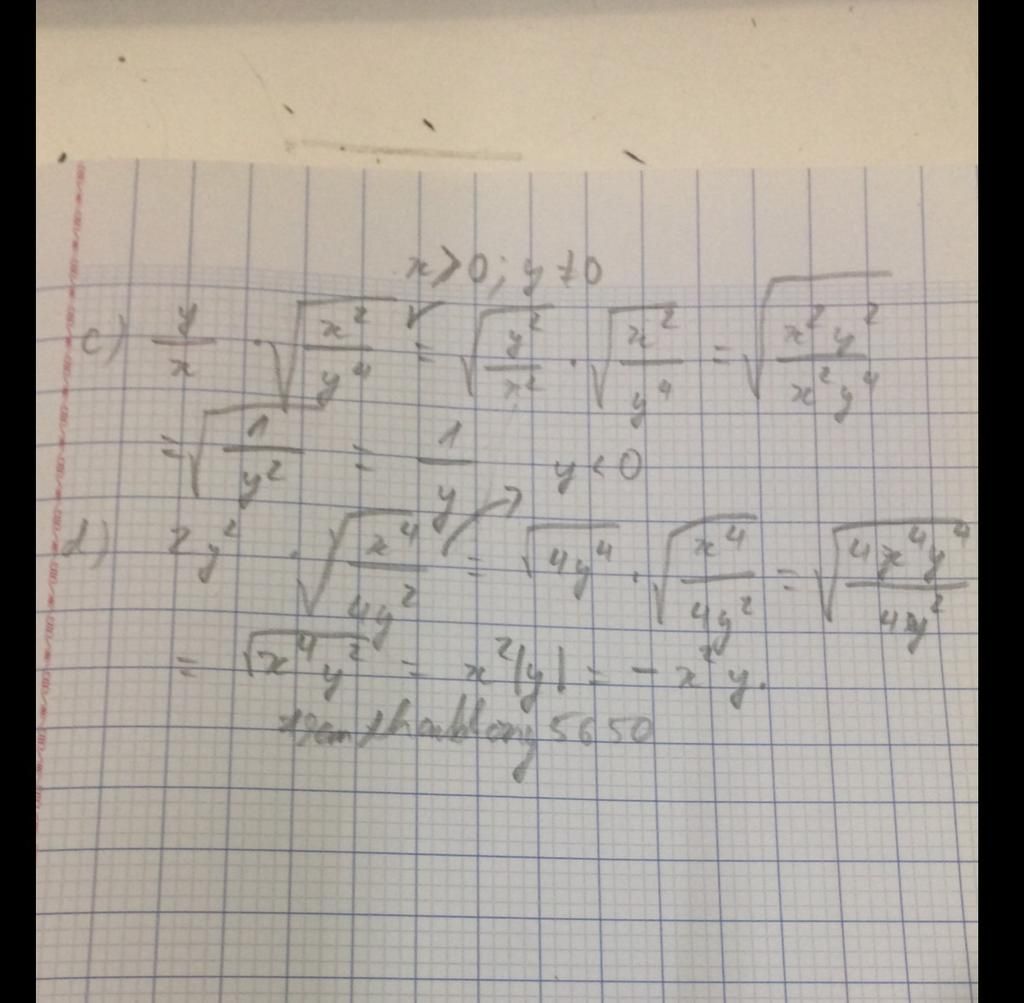 x > 0 ; y ≠ 0
c) y/x · √(x²/y⁴) = √(y²/x²) · √(x²/y⁴) = √(x²y²/x²y⁴)
= √(1/y²) = 1/y y < 0
d) 2y² · √(x⁴/4y²) = √4y⁴ · √(x⁴/4y²) = √(4x⁴y⁴/4y²)
= √x⁴y² = x²|y| = - x²y.
5650